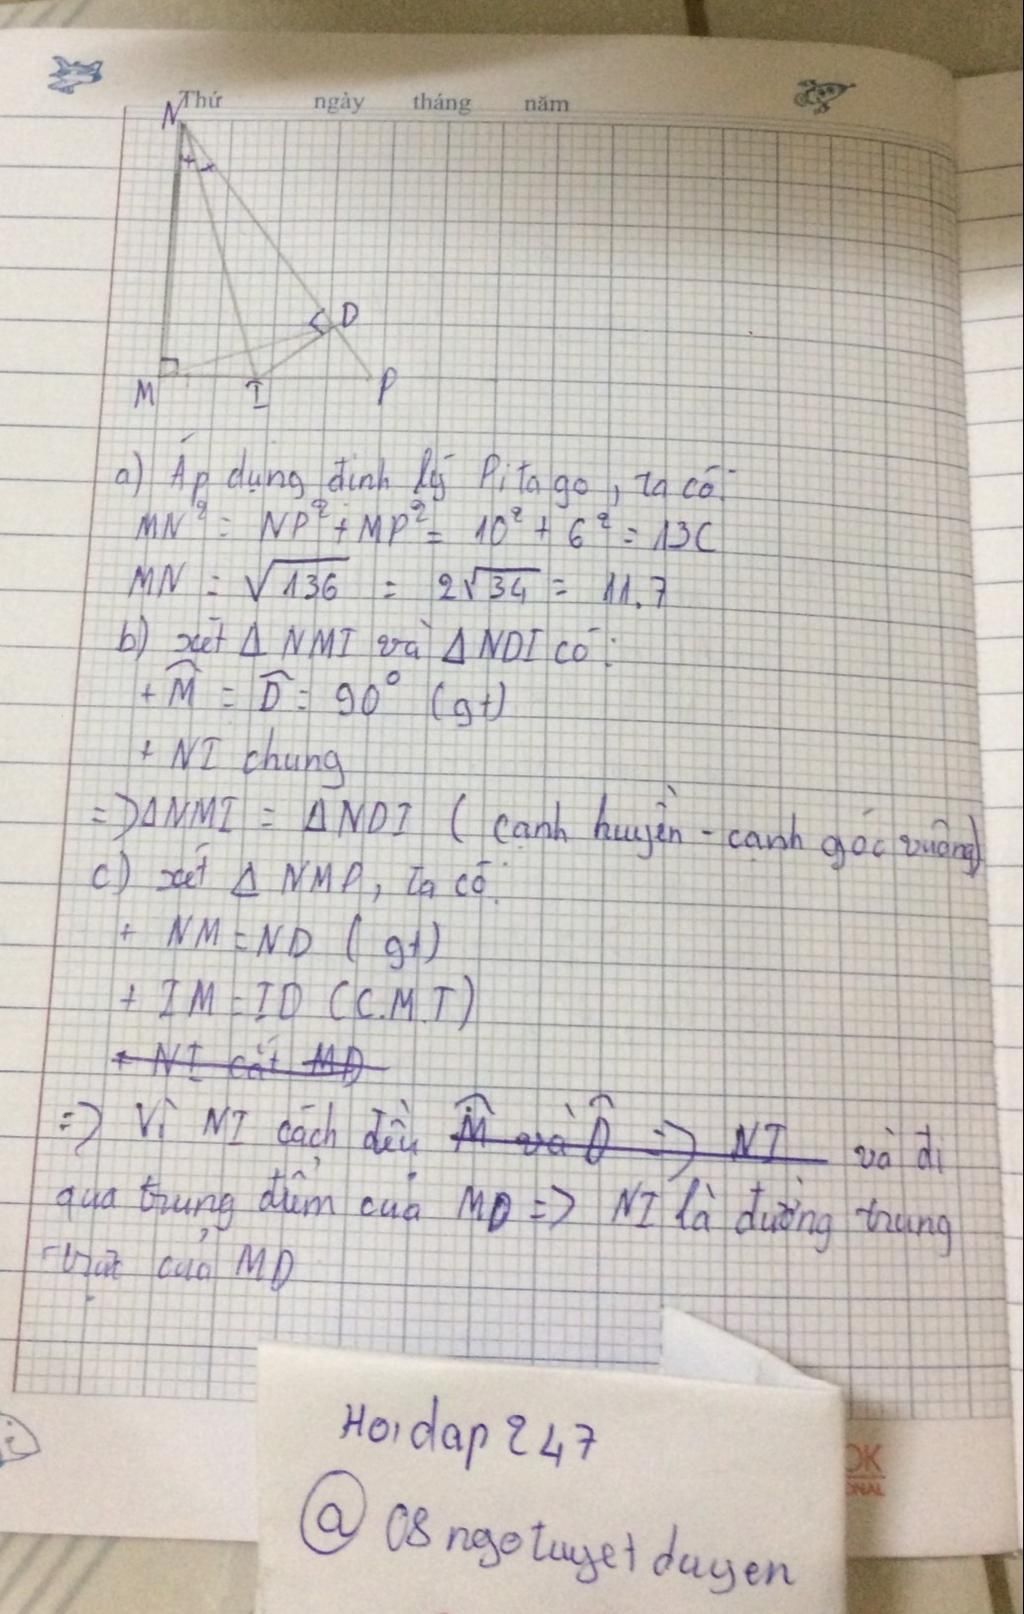 Thứ ngày tháng năm
N
D
M I P
a) Áp dụng định lý Pitago, ta có:
MN² = NP² + MP² = 10² + 6² = 136
MN = √136 = 2√34 = 11.7
b) xét Δ NMI và Δ NDI có:
+ M̂ = D̂ = 90° (gt)
+ NI chung
=> ΔNMI = ΔNDI (cạnh huyền - cạnh góc vuông)
c) xét Δ NMP, ta có:
+ NM = ND (gt)
+ IM = ID (C.M.T)
+ NI cắt MD
=> Vì NI cách đều M̂ và D̂ => NI và đi
qua trung điểm của MD => NI là đường trung
trực của MD
Hoidap247
@ 08ngotuyetduyen
OK
ONAL